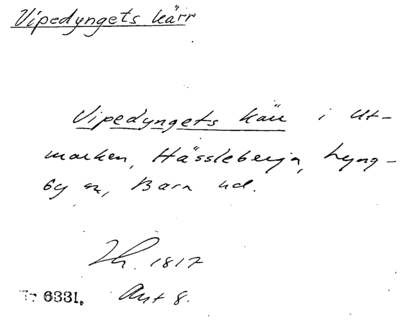 Vipedyngets kärr
Vipedyngets kärr i Ut-
marken, Hässleberga, Lyng-
by sn, Bara hd.
1817
6331. Akt 8.